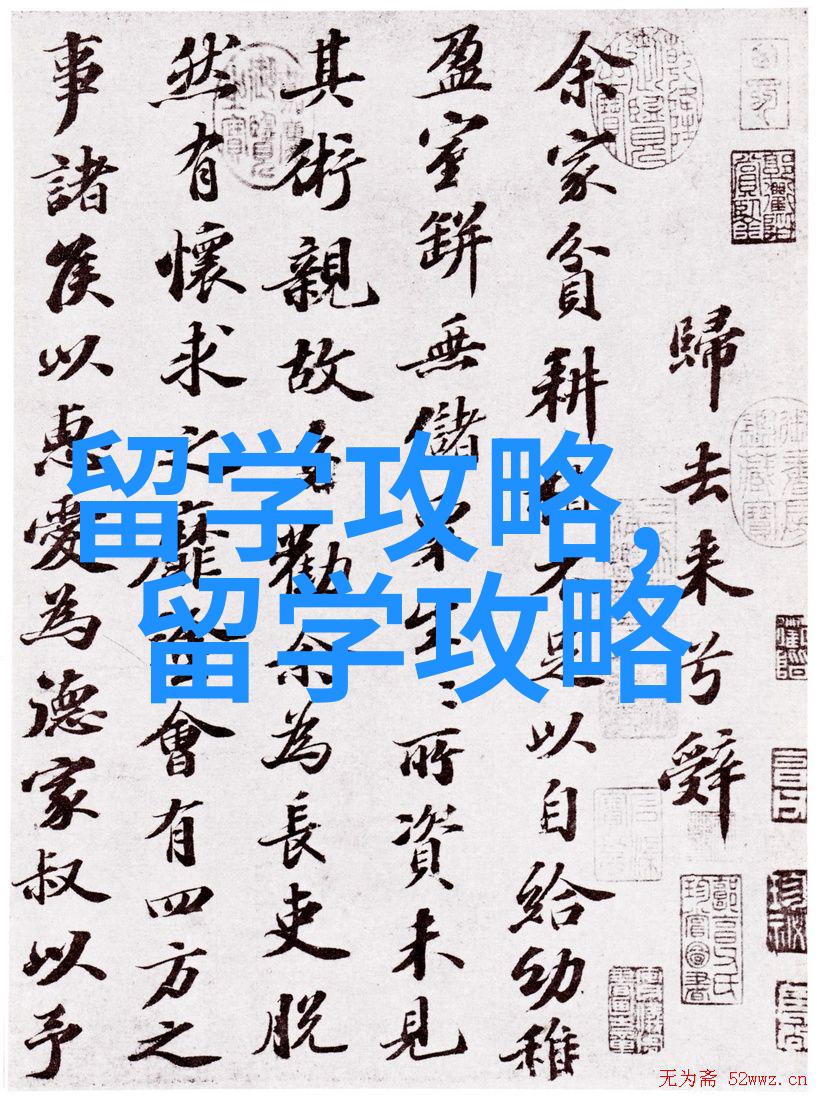 歸去来兮辭
余家貧耕植不足以自給幼稚
盈室缾無儲粟生〻所資未見
其術親故多勸余為長吏脱
然有懷求之靡途會有四方之
事諸侯以惠愛為德家叔以予
留学攻略,
留学攻略
无为斋 52wwz.cn